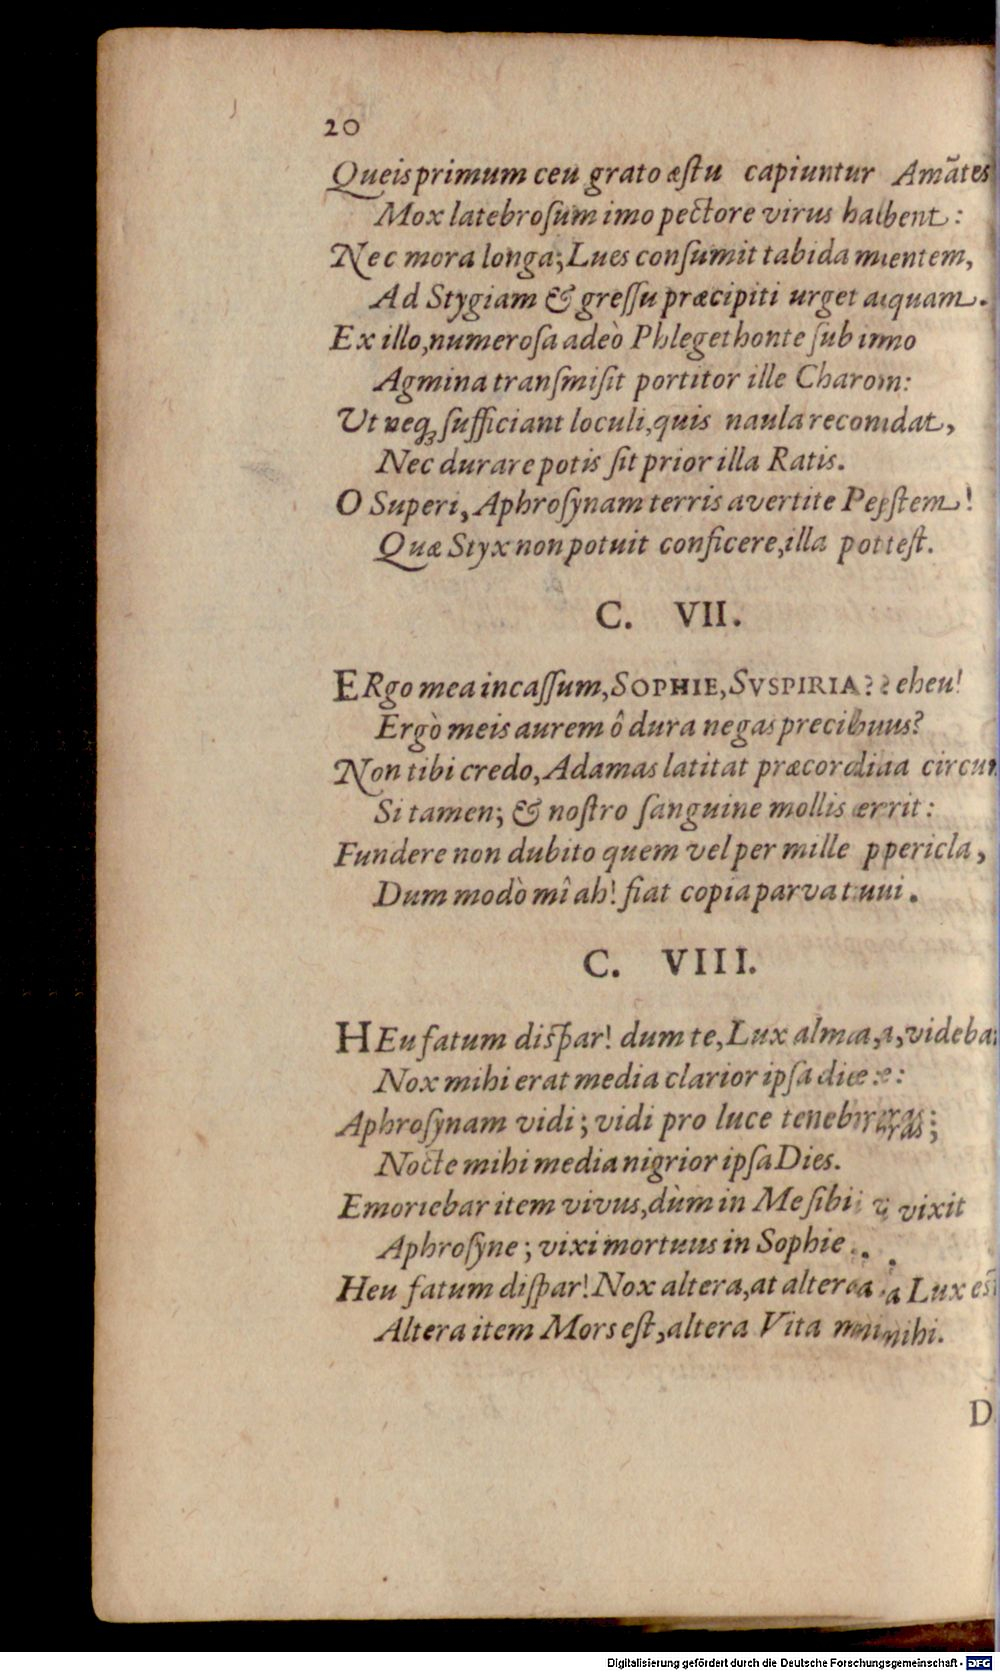 20
Queis primum ceu grato æstu capiuntur Amãtes
Mox latebrosum imo pectore virus habent:
Nec mora longa; Lues consumit tabida mentem,
Ad Stygiam & gressu præcipiti urget aquam.
Ex illo, numerosa adeò Phlegethonte sub imo
Agmina transmisit portitor ille Charon:
Ut neq; sufficiant loculi, quis naula recondat,
Nec durare potis sit prior illa Ratis.
O Superi, Aphrosynam terris avertite Pestem!
Quæ Styx non potuit conficere, illa potest.
C. VII.
ERgo mea incassum, SOPHIE, SVSPIRIA? eheu!
Ergò meis aurem ô dura negas precibus?
Non tibi credo, Adamas latitat præcordia circum
Si tamen; & nostro sanguine mollis erit:
Fundere non dubito quem vel per mille pericla,
Dum modò mî ah! fiat copia parva tui.
C. VIII.
HEu fatum dispar! dum te, Lux alma, videba
Nox mihi erat media clarior ipsa die:
Aphrosynam vidi; vidi pro luce tenebras;
Nocte mihi media nigrior ipsa Dies.
Emoriebar item vivus, dùm in Me sibi vixit
Aphrosyne; vixi mortuus in Sophie.
Heu fatum dispar! Nox altera, at altera Lux est
Altera item Mors est, altera Vita mihi.
D
Digitalisierung gefördert durch die Deutsche Forschungsgemeinschaft - DFG